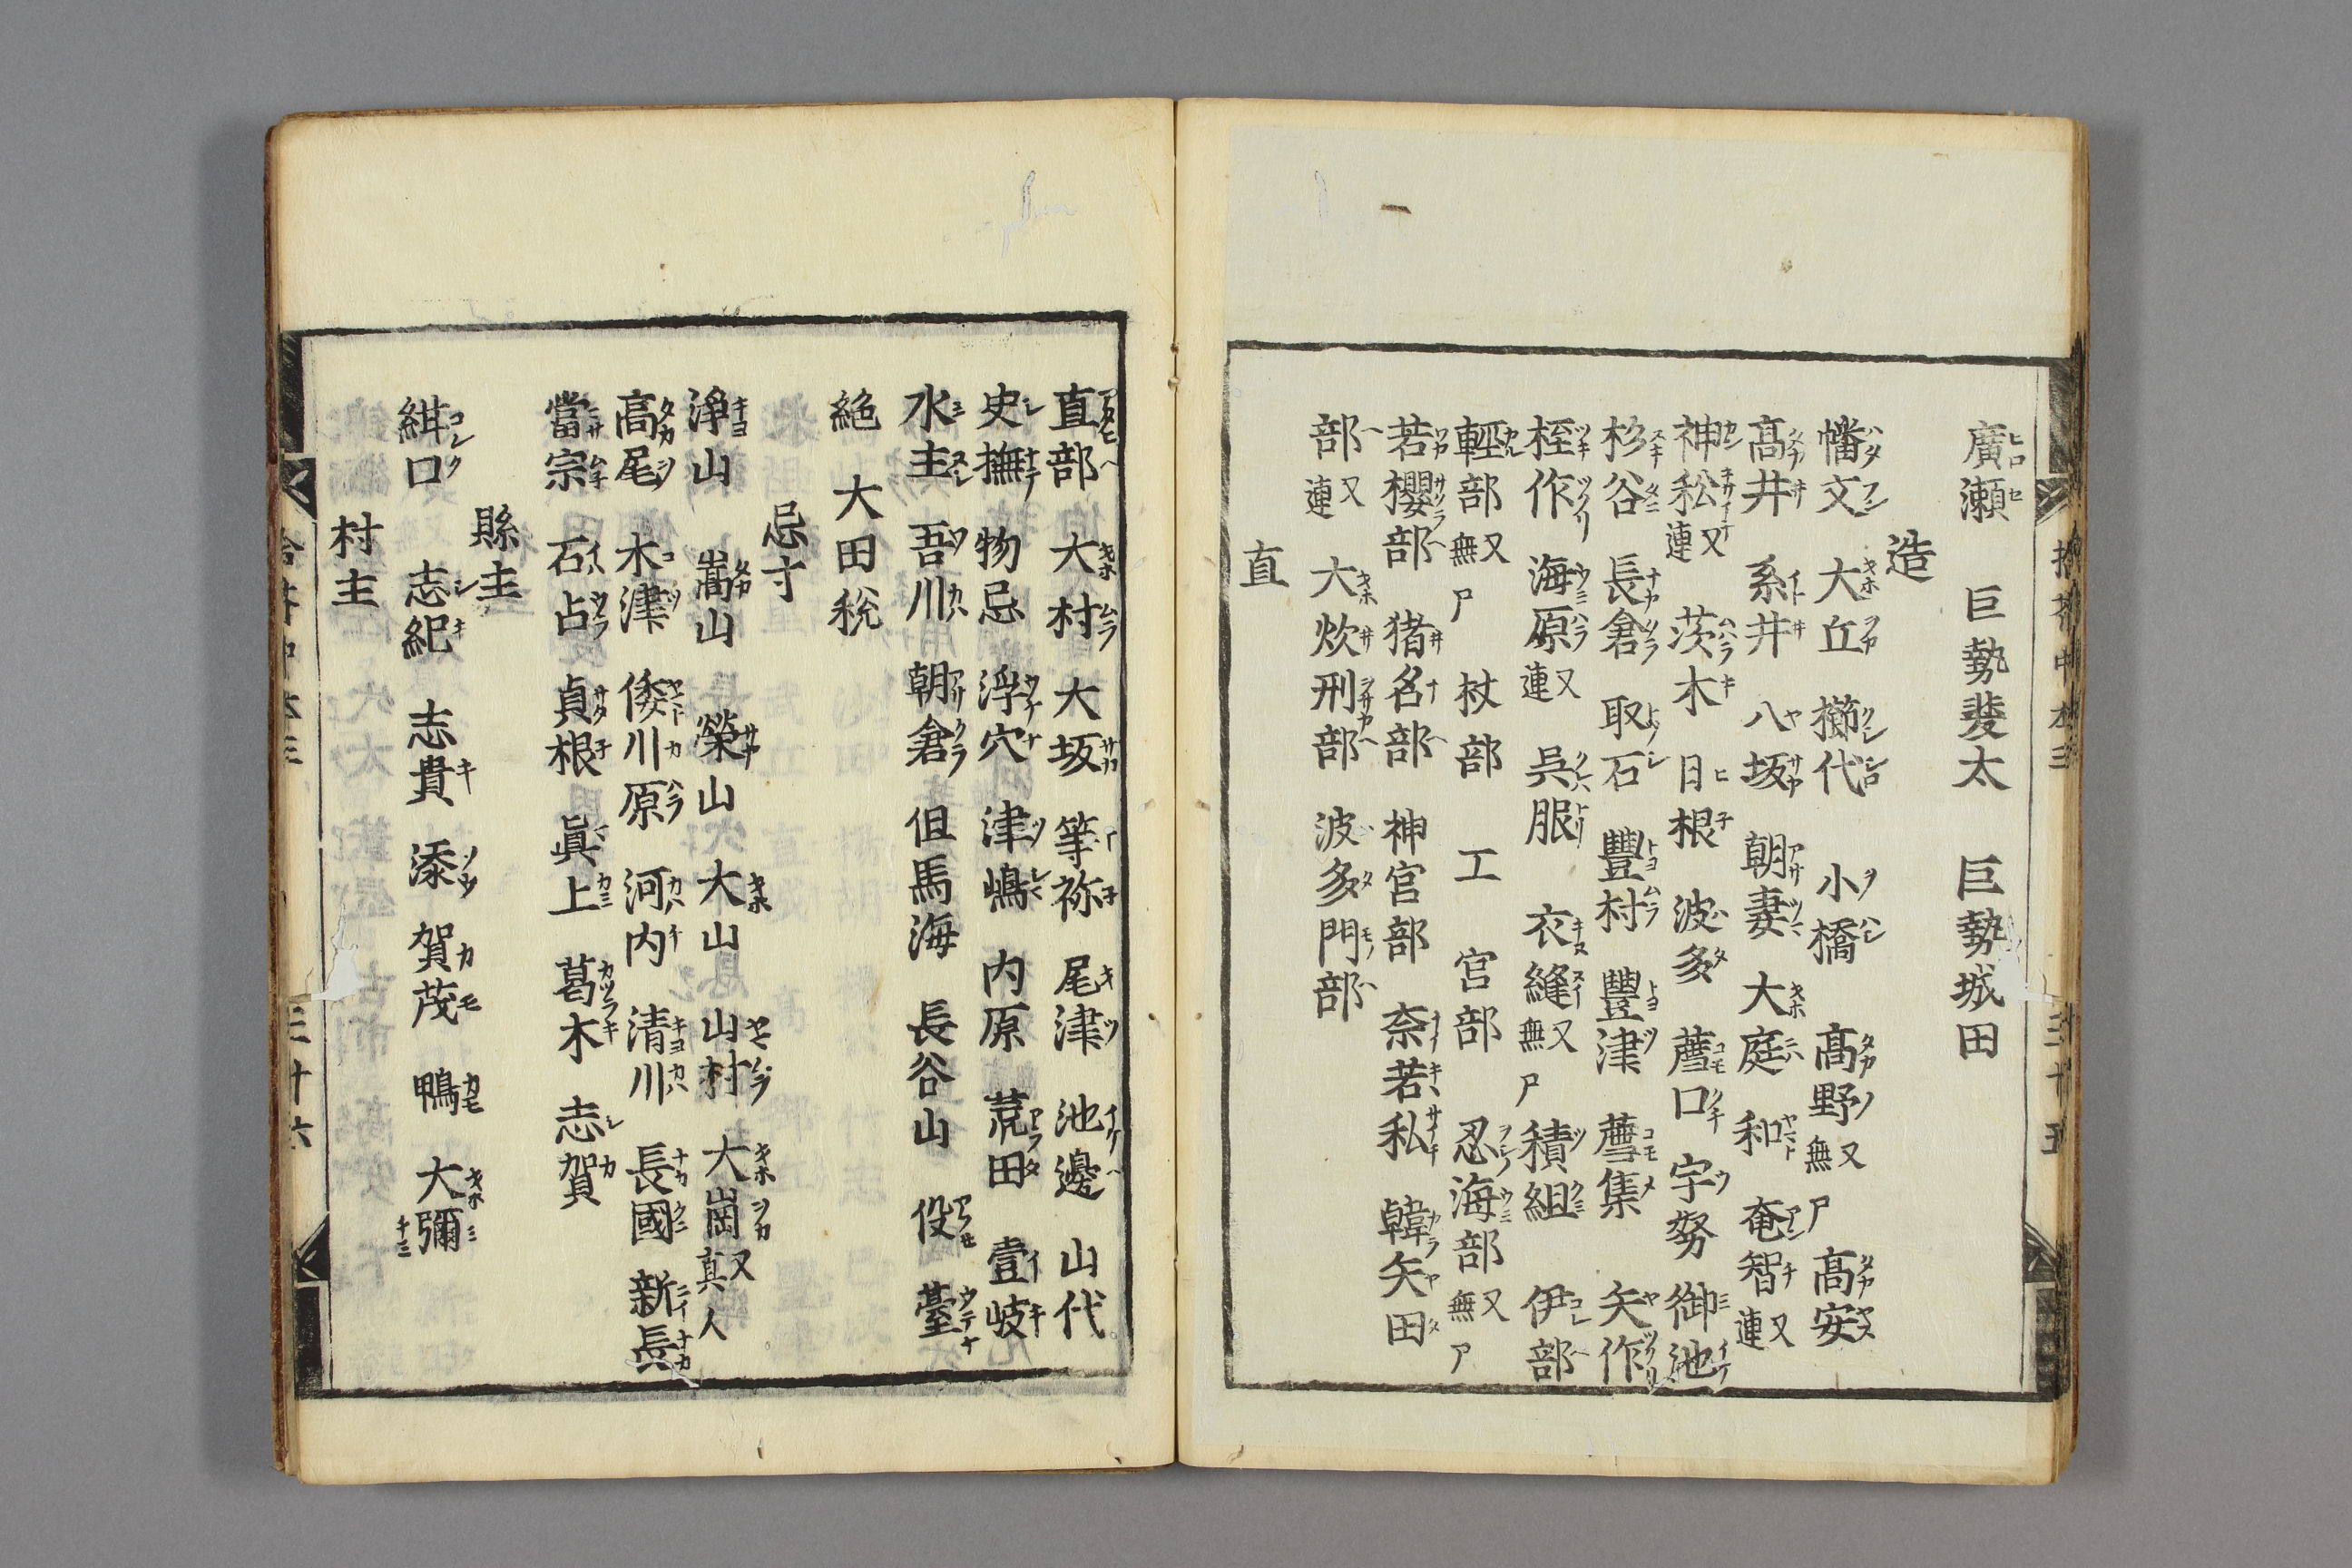 廣瀬 巨勢斐太 巨勢城田
造
幡文 大丘 櫛代 小橋 髙野又無尸 髙安
髙井 系井 八坂 朝妻 大庭 和 奄智又連
神私又連 茨木 日根 波多 薦口 宇努 御池
杉谷 長倉 取石 豐村 豐津 薦集 矢作
桎作 海原又連 呉服 衣縫又無尸 積組 伊部
輕部又無尸 杖部 工 宮部 忍海部又無尸
若櫻部 猪名部 神官部 奈若私 韓矢田
部又連 大炊刑部 波多門部
直
直部 大村 大坂 等祢 尾津 池邊 山代
史撫 物忌 浮穴 津嶋 内原 荒田 壹岐
水主 吾川 朝倉 但馬海 長谷山 役 臺
絶 大田税
忌寸
淨山 嵩山 榮山 大山 山村 大崗又真人
高尾 木津 倭川原 河内 清川 長國 新長
當宗 石占 貞根 眞上 葛木 志賀
縣主
紺口 志紀 志貴 添 賀茂 鴨 大彌
村主